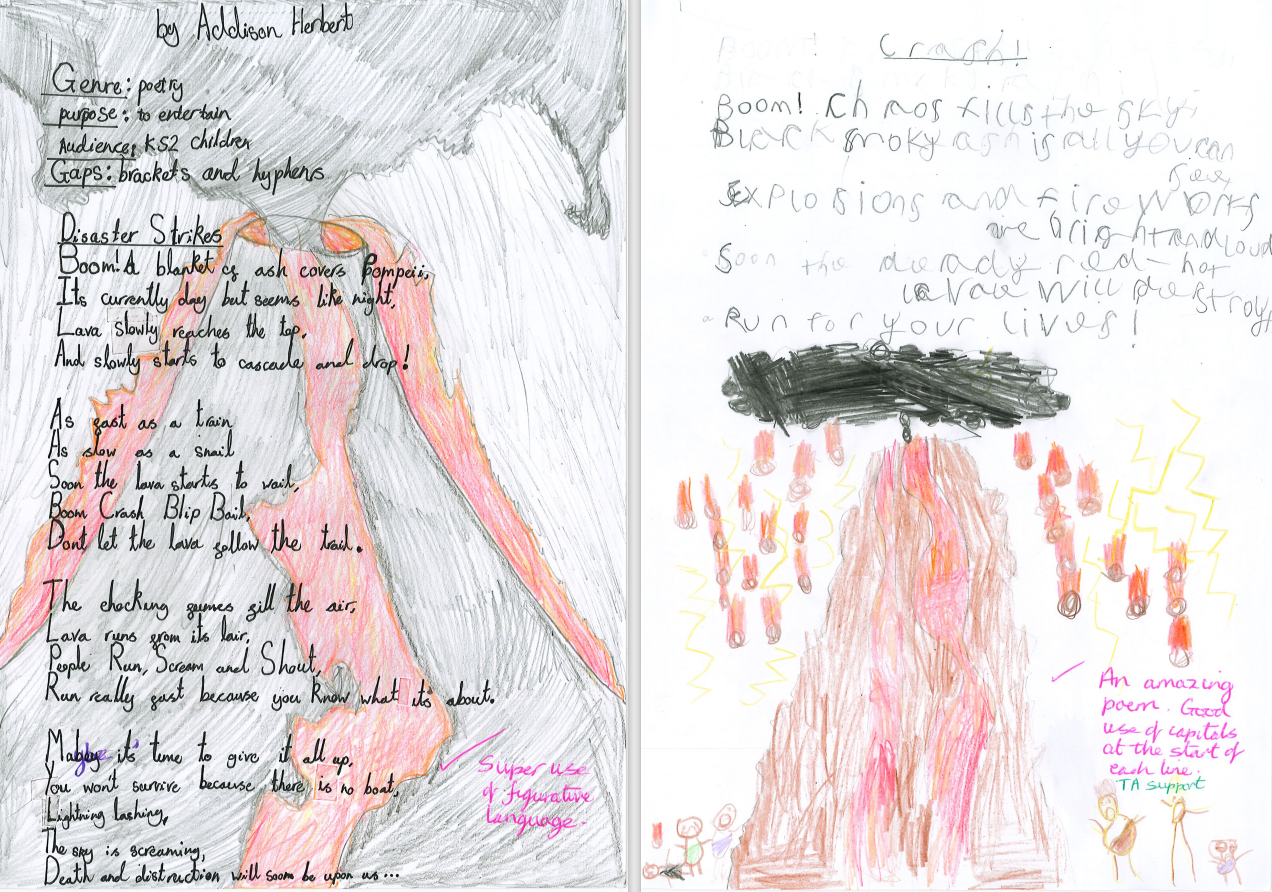 by Addison Herbert
Genre: poetry
purpose: to entertain
Audience: KS2 children
Gaps: brackets and hyphens
Disaster Strikes
Boom! A blanket of ash covers Pompeii,
Its currently day but seems like night,
Lava slowly reaches the top,
And slowly starts to cascade and drop!
As fast as a train
As slow as a snail
Soon the lava starts to wail,
Boom Crash Blip Bail,
Dont let the lava follow the trail.
The chocking fumes fill the air,
Lava runs from its lair,
People Run, Scream and Shout,
Run really fast because you know what its about.
Maybe it's time to give it all up,
You won't survive because there is no boat,
Lightning lashing,
The sky is screaming,
Death and distruction will soom be upon us...
Super use
of figurative
language.
Crash!
Boom! Chaos fills the sky;
Black smoky ash is all you can
see,
Explosions and fireworks
are bright and loud
Soon the deready red-hot
lavae will destroy
Run for your lives!
An amazing
poem. Good
use of capitals
at the start of
each line.
TA support